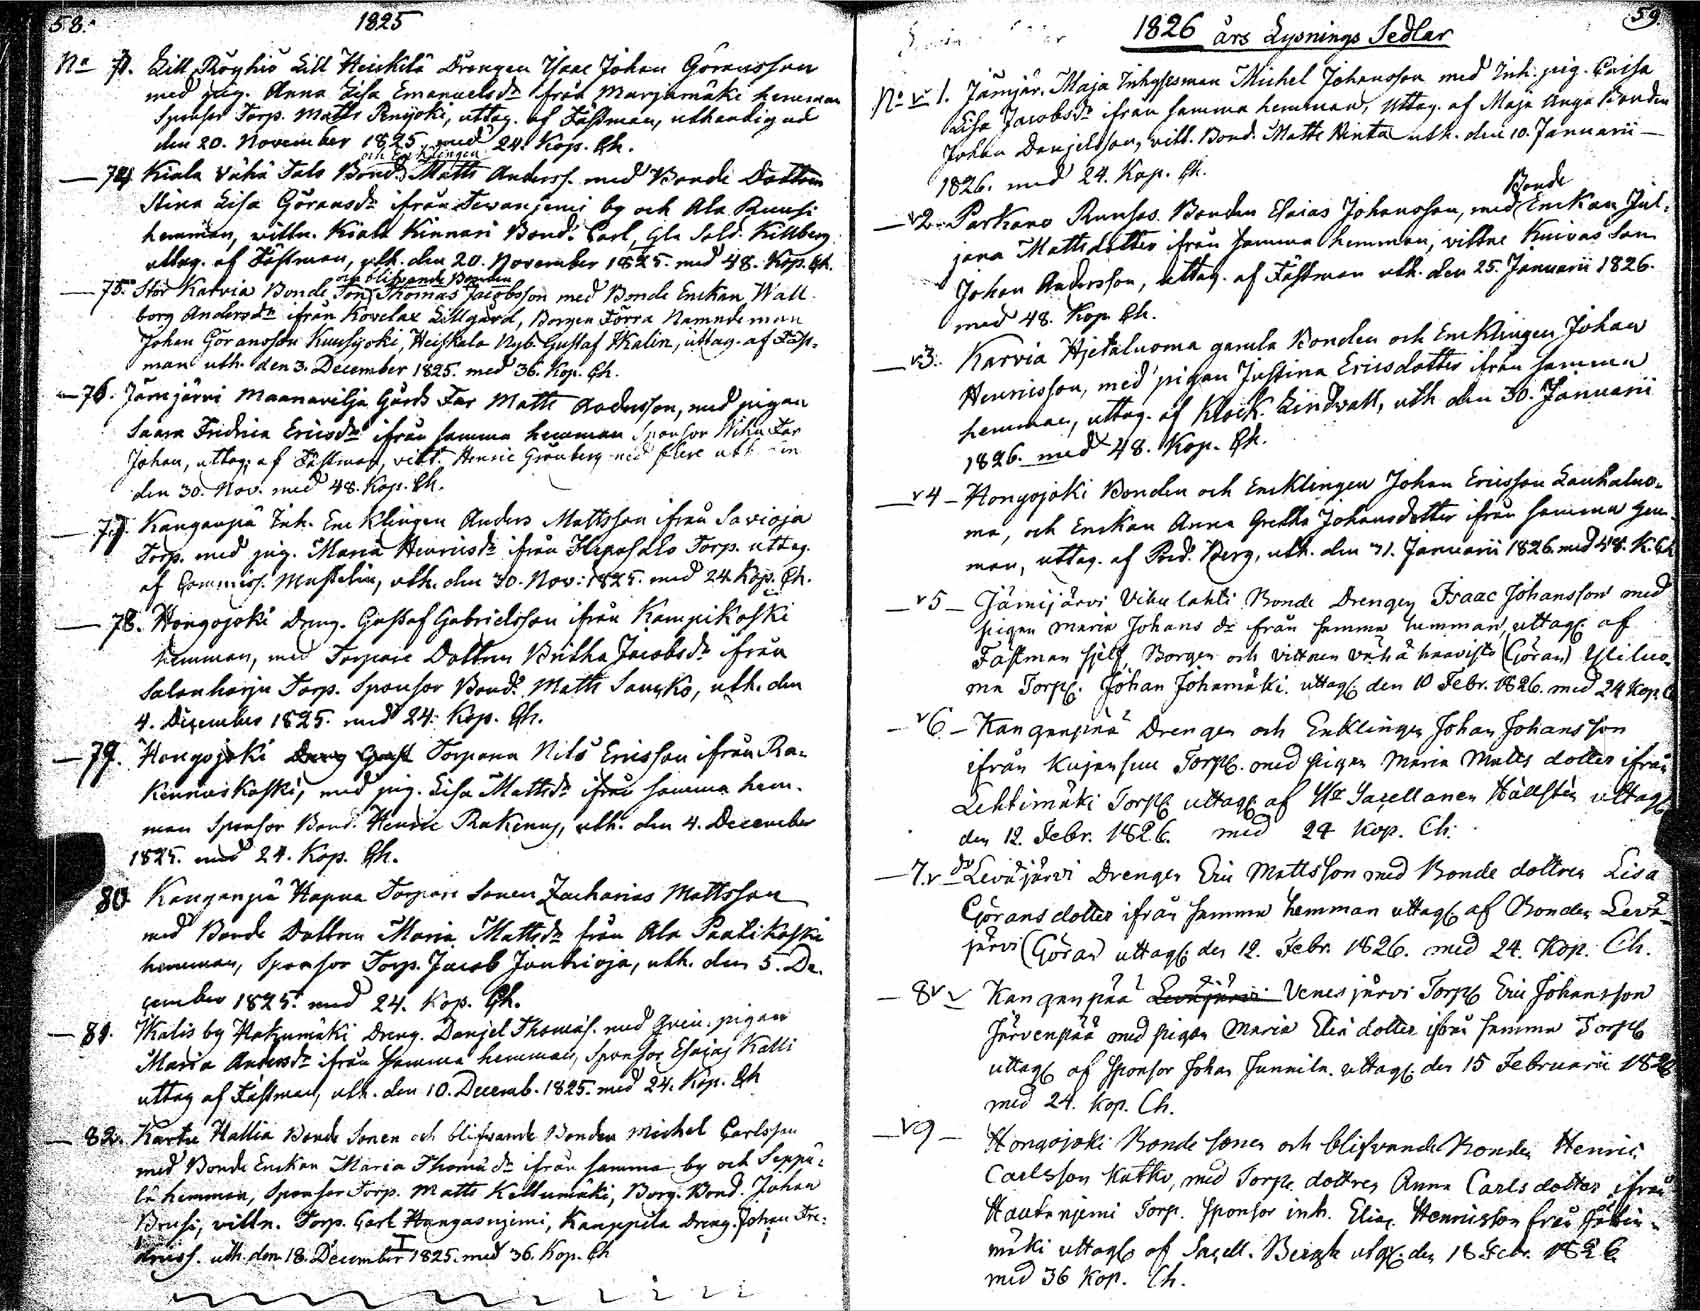 58.
1825
No 73. Lill Röyhiö Lill Heickilä Drengen Isaac Johan Göransson
med pig. Anna Lisa Emanuelsdr från Marjamäki hemman
Sponsor Torp. Matts Penijoki, uttag. af Fästman, uthändigad
den 20. November 1825 med 24. Kop. Ch.
och Encklingen
74 Kiala Vähä Talo Bond. Matts Anderss. med Bonde Dottren
Stina Lisa Göransdr ifrån Tevanjemi by och Ala Ruusi
hemman, vittn. Kiala Kinnari Bond. Carl, Gla Sold. Killberg
uttag. af Fästman, uth. den 20. November 1825. med 48. Kop. Ch.
och blifvande Bonden
75. Stor Karvia Bonde Son Thomas Jacobsson med Bonde Enckan Wall
borg Andersdr ifrån Kovelax Lillgård, Borgen Förra Nämndeman
Johan Göransson Kuusijoki, Heiskala Nyb. Gustaf Skalin, uttag. af Fäst-
man uth. den 3. December 1825. med 36. Kop. Ch.
76. Jämijärvi Maanavilja Gårds Far Matts Andersson, med pigan
Saara Fridrica Ericsdr ifrån samma hemman Sponsor
Johan, uttag. af Fästman, vitt. Henric Grönberg med flere uth
den 30. Nov. med 48. Kop. Ch.
77. Kanganpä Inh. Encklingen Anders Mattsson ifrån Savioja
Torp. med pig. Maria Henricsdr ifrån Torp. uttag.
af Commiss. Mustelin, uth. den 30. Nov: 1825. med 24 Kop. Ch.
78. Hongojoki Dreng. Gustaf Gabrielsson ifrån Kampikoski
hemman, med Torpare Dottren Britha Jacobsdr ifrån
Salonharju Torp. Sponsor Bond. Matts Sausko, uth. den
4. December 1825. med 24. Kop. Ch.
79. Hongojoki Torparen Nils Ericsson ifrån Ra-
kennuskoski, med pig. Lisa Mattsdr ifrån samma hem-
man Sponsor Bond. Henric Rakenus, uth. den 4. December
1825. med 24. Kop. Ch.
80 Kanganpä Hapua Torpare Sonen Zacharias Mattsson
med Bonde Dottren Maria Mattsdr från Ala Paatikoski
hemman, Sponsor Torp. Jacob Juntrioja, uth. den 5. De-
cember 1825. med 24. Kop. Ch.
81. Ikalis by Hakumäki Dreng. Danjel Thomas. med pigan
Maria Andersdr ifrån samma hemman, Sponsor Esajas Kalli
uttag af Fästman, uth. den 10. Decemb. 1825. med 24. Kop. Ch
82. Kartu Hallia Bonde Sonen och blifvande Bonden Michel Carlsson
med Bonde Enckan Maria Thomasdr ifrån samma by och Seppä-
lä hemman, Sponsor Torp. Matts Kellumäki, Borg. Bond. Johan
Brusi, vittn. Torp. Carl Hangasnjemi, Kauppila Dreng. Johan Fre-
dricss. uth. den 18. December 1825. med 36. Kop. Ch
59
1826 års Lysnings Sedlar
No v 1. Jämjär. Maja Inhysesman Michel Johansson med Inh. pig. Caisa
Lisa Jacobsdr ifrån samma hemman, uttag. af Maja Unga Bonden
Johan Danjelsson, vitt. Bond. Matts Hinta uth. den 10. Januarii
1826. med 24. Kop. Ch.
Bonde
v2. Parkano Runsas Bonden Esaias Johansson, med Enckan Jul-
jana Mattsdotter ifrån samma hemman, vittne Kuivas Son
Johan Andersson, uttag. af Fästman uth. den 25. Januarii 1826.
med 48. Kop. Ch.
v3. Karvia Hjetaluoma gamla Bonden och Encklingen Johan
Henricsson, med pigan Justina Ericsdotter ifrån samma
hemman, uttag. af Klock. Lindwall, uth den 30. Januarii
1826. med 48. Kop. Ch.
v4 Hongojoki Bonden och Encklingen Johan Ericsson Lauhaluo-
ma, och Enckan Anna Gretha Johansdotter ifrån samma hem-
man, uttag. af Pred. Berg, uth. den 31. Januarii 1826. med 48. K. Ch
v5 Jämijärvi Viku lahti Bonde Drengen Isaac Johansson med
pigan Maria Johansdr från samma hemman, uttag. af
Fästman sjelf, Borgen och vittnen vähä haavisto (Göran) Ylilu-
ma Torp. Johan Johamäki. uttag. den 10 Febr. 1826. med 24 Kop. C
v6 Kanganpää Drengen och Enklingen Johan Johansson
ifrån Kujansuu Torp. med pigan Maria Matts dotter ifrån
Lehtimäki Torp. uttag. af Hr Sacellanen Hällsten uttag.
den 12. Febr. 1826. med 24 Kop. Ch:
7.v do Leväjärvi Drengen Eric Mattsson med Bonde dottren Lisa
Görans dotter ifrån samma hemman uttag. af Bonden Levä-
järvi (Göran) uttag. den 12. Febr. 1826. med 24. Kop. Ch.
8v v Kanganpää Leväjärvi Venesjärvi Torp. Eric Johansson
Järvenpää med pigan Maria Elia dotter ifrån samma Torp.
uttag. af Sponsor Johan Junnila. uttag. den 15 Februarii 1826
med 24. Kop. Ch.
v9 Hongojoki Bonde sonen och blifvande Bonden Henric
Carlsson Katko, med Torpe dottren Anna Carls dotter ifrån
Hautanjemi Torp. Sponsor inh. Elias Henricsson från
mäki uttag. af Sacell. Bergh utg. den 18 Febr. 1826
med 36 Kop. Ch.